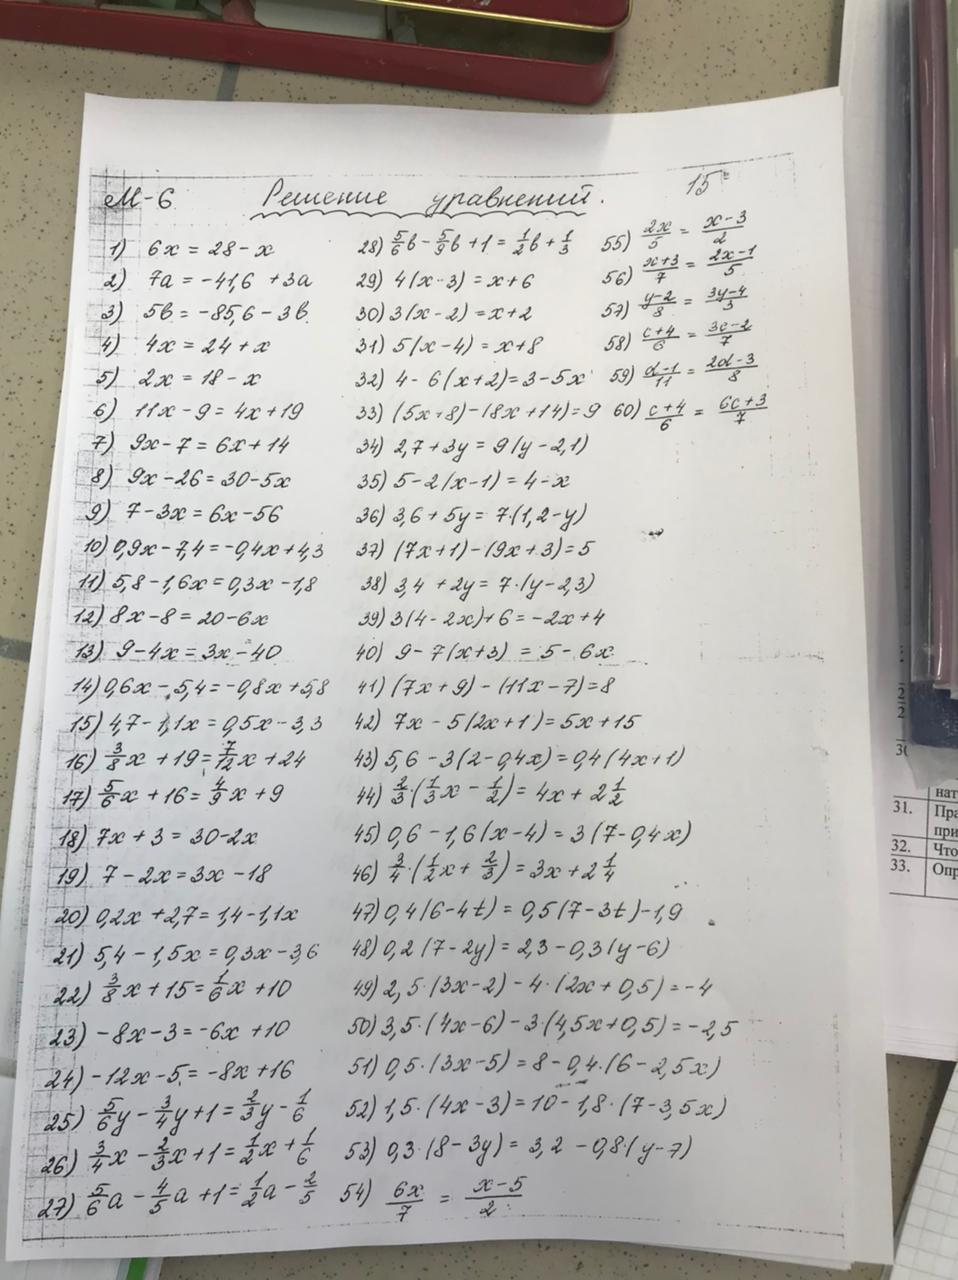 М-6 Решение уравнений. 15
1) 6x = 28 - x
2) 7a = -41,6 + 3a
3) 5b = -85,6 - 3b
4) 4x = 24 + x
5) 2x = 18 - x
6) 11x - 9 = 4x + 19
7) 9x - 7 = 6x + 14
8) 9x - 26 = 30 - 5x
9) 7 - 3x = 6x - 56
10) 0,9x - 7,4 = -0,4x + 4,3
11) 5,8 - 1,6x = 0,3x - 1,8
12) 8x - 8 = 20 - 6x
13) 9 - 4x = 3x - 40
14) 0,6x - 5,4 = -0,8x + 5,8
15) 4,7 - 1,1x = 0,5x - 3,3
16) 3/8 x + 19 = 7/12 x + 24
17) 5/6 x + 16 = 4/9 x + 9
18) 7x + 3 = 30 - 2x
19) 7 - 2x = 3x - 18
20) 0,2x + 2,7 = 1,4 - 1,1x
21) 5,4 - 1,5x = 0,3x - 3,6
22) 3/8 x + 15 = 1/6 x + 10
23) -8x - 3 = -6x + 10
24) -12x - 5 = -8x + 16
25) 5/6 y - 3/4 y + 1 = 2/3 y - 1/6
26) 3/4 x - 2/3 x + 1 = 1/2 x + 1/6
27) 5/6 a - 4/5 a + 1 = 1/2 a - 2/5
28) 5/6 b - 5/9 b + 1 = 1/2 b + 1/3
29) 4(x - 3) = x + 6
30) 3(x - 2) = x + 2
31) 5(x - 4) = x + 8
32) 4 - 6(x + 2) = 3 - 5x
33) (5x + 8) - (8x + 14) = 9
34) 2,7 + 3y = 9(y - 2,1)
35) 5 - 2(x - 1) = 4 - x
36) 3,6 + 5y = 7(1,2 - y)
37) (7x + 1) - (9x + 3) = 5
38) 3,4 + 2y = 7·(y - 2,3)
39) 3(4 - 2x) + 6 = -2x + 4
40) 9 - 7(x + 3) = 5 - 6x
41) (7x + 9) - (11x - 7) = 8
42) 7x - 5(2x + 1) = 5x + 15
43) 5,6 - 3(2 - 0,4x) = 0,4(4x + 1)
44) 2/3·(1/3 x - 1/2) = 4x + 2 1/2
45) 0,6 - 1,6(x - 4) = 3(7 - 0,4x)
46) 3/4·(1/2 x + 2/3) = 3x + 2 1/4
47) 0,4(6 - 4t) = 0,5(7 - 3t) - 1,9
48) 0,2(7 - 2y) = 2,3 - 0,3(y - 6)
49) 2,5·(3x - 2) - 4·(2x + 0,5) = -4
50) 3,5·(4x - 6) - 3·(4,5x + 0,5) = -2,5
51) 0,5·(3x - 5) = 8 - 0,4·(6 - 2,5x)
52) 1,5·(4x - 3) = 10 - 1,8·(7 - 3,5x)
53) 0,3·(8 - 3y) = 3,2 - 0,8(y - 7)
54) 6x/7 = x-5/2
55) 2x/5 = x-3/2
56) x+3/7 = 2x-1/5
57) y-2/8 = 3y-4/3
58) c+4/6 = 3c-2/7
59) d-1/11 = 2d-3/8
60) c+4/6 = 6c+3/7
31.
При
32. Что
33. Опр